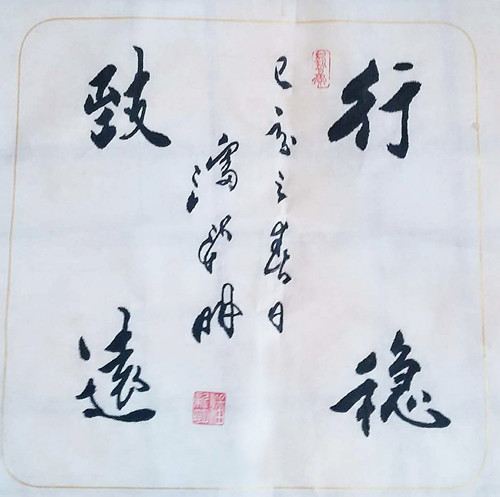 行稳
致遠
己亥之春日
明